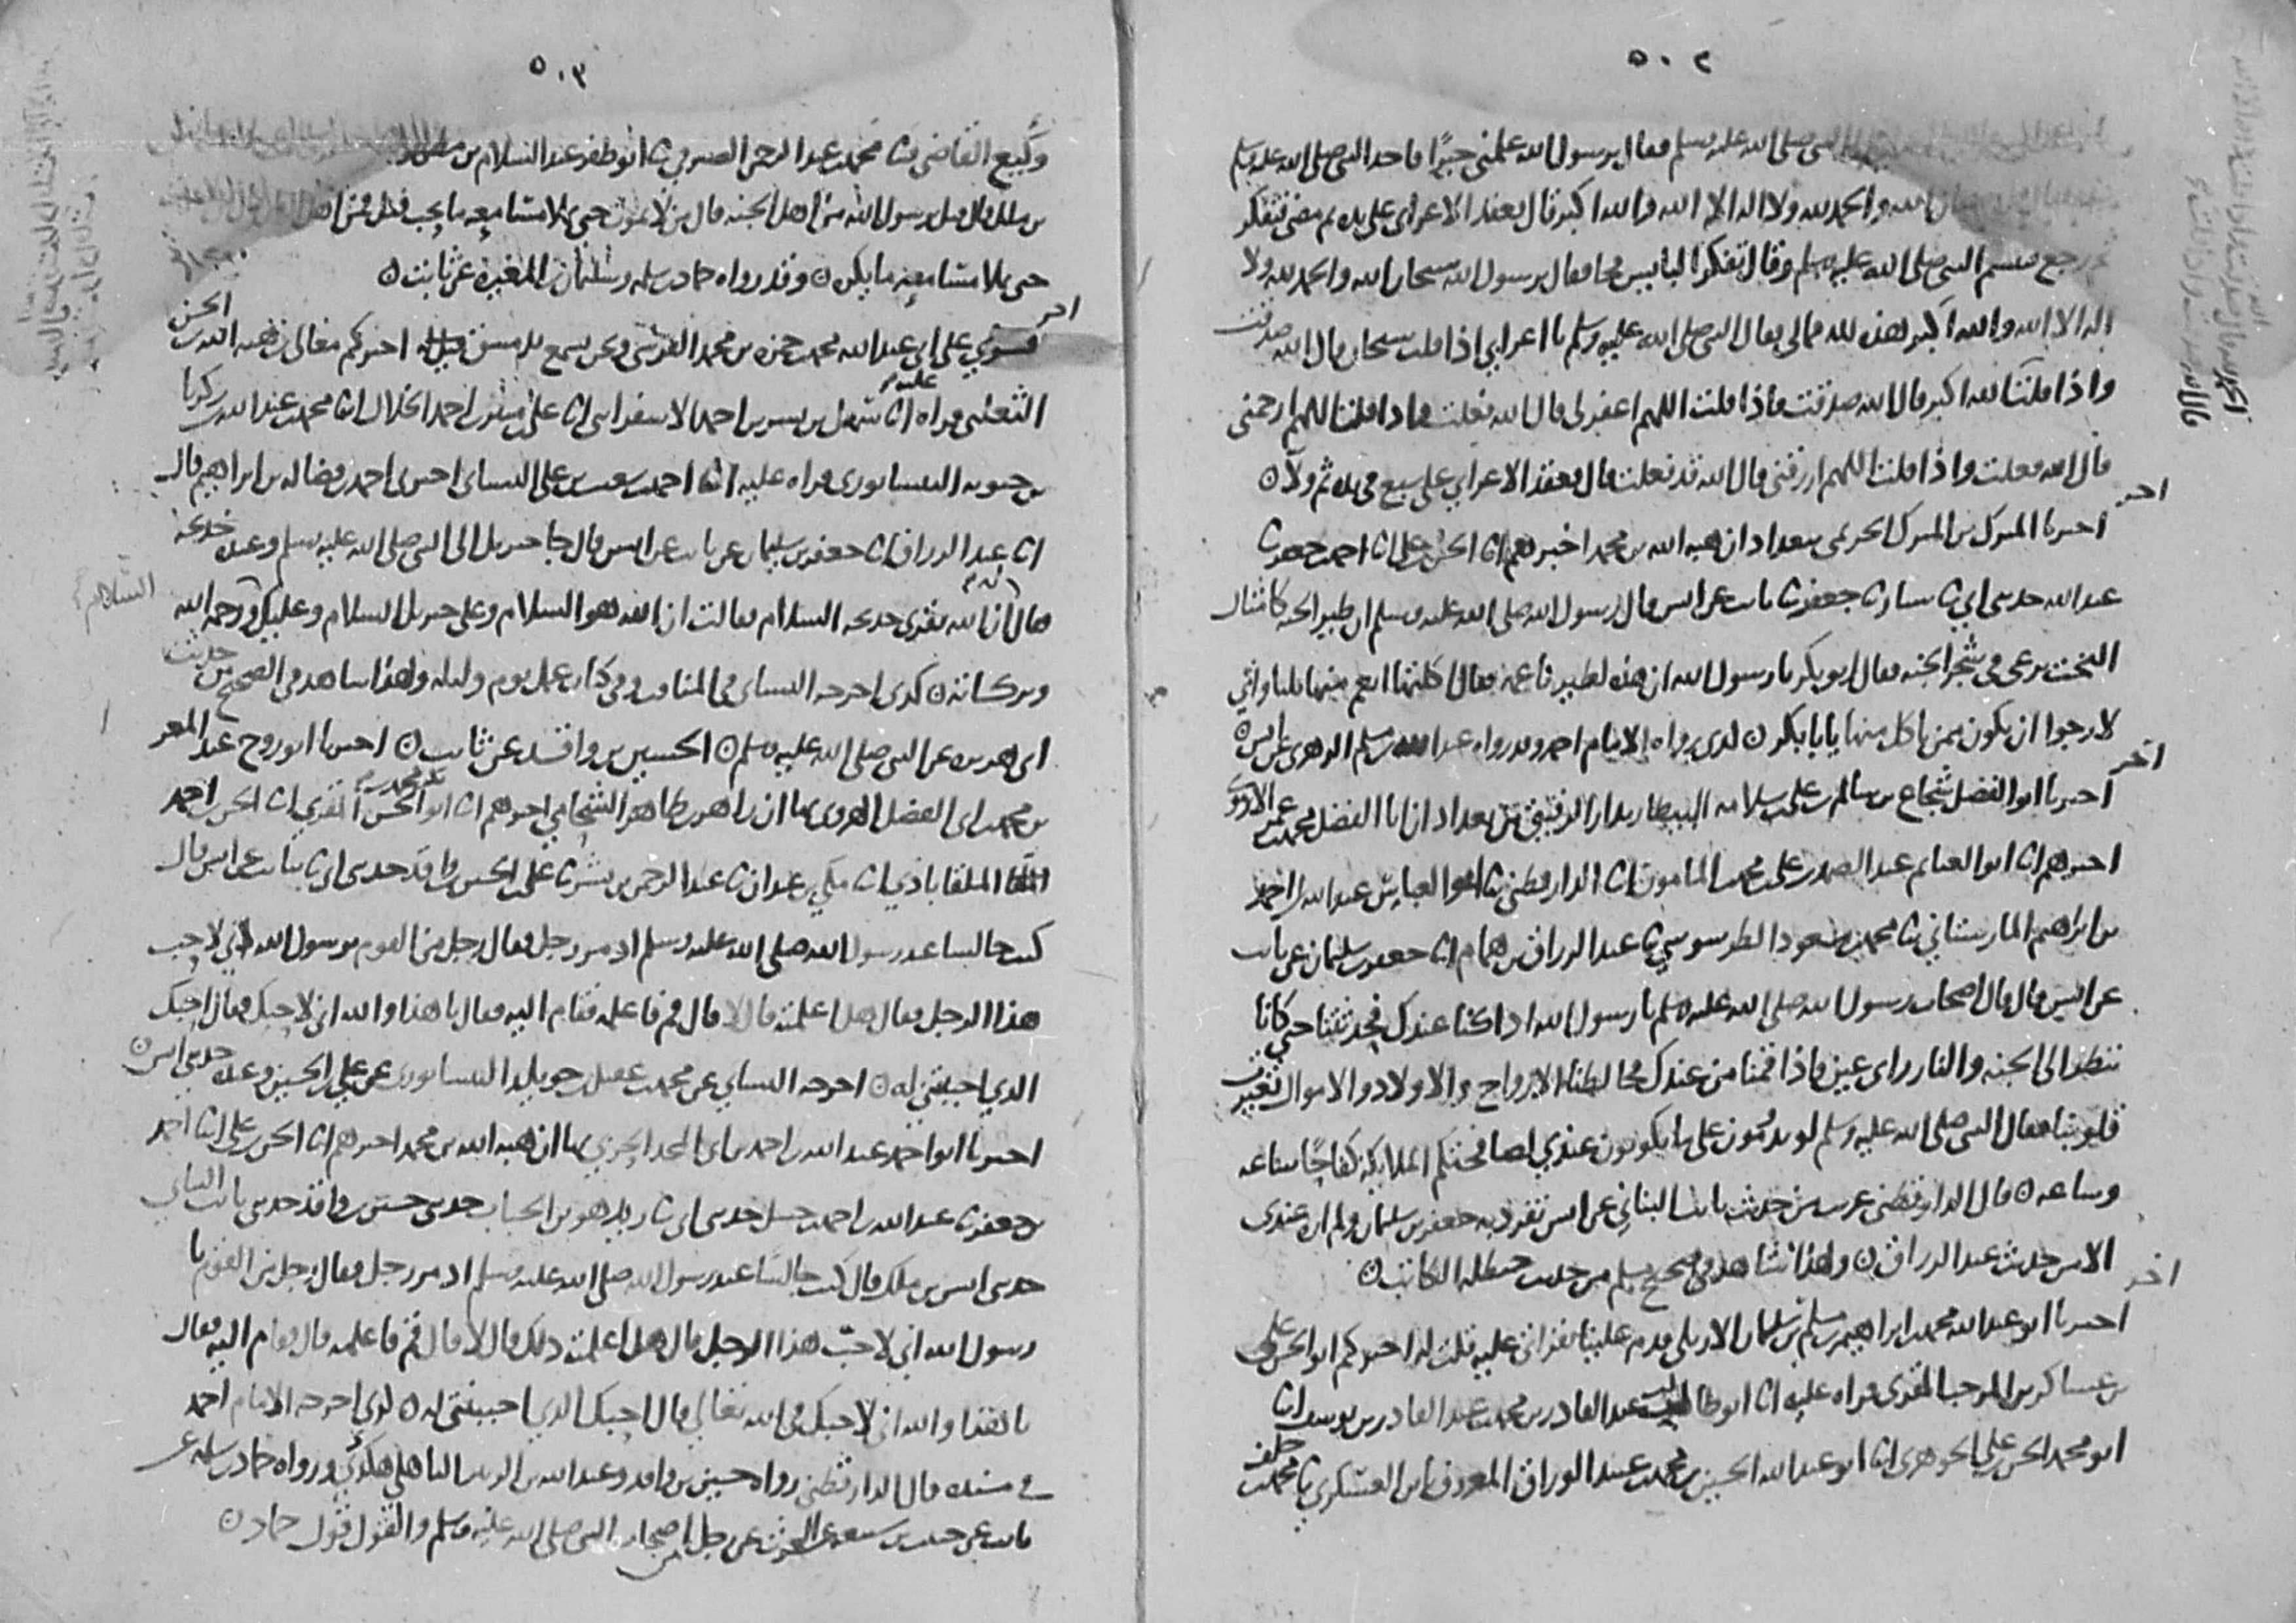 ٥٠٢
النبي صلى الله عليه وسلم فقال يرسول الله علمني خيرًا فاخذ النبي صلى الله عليه وسلم
الله والحمد لله ولا اله الا الله والله اكبر قال فعقد الاعرابي على يده ثم مضى فتفكر
ثم رجع فتبسم النبي صلى الله عليه وسلم وقال تفكر البايس فجا فقال يرسول الله سبحان الله والحمد لله ولا
اله الا الله والله اكبر هذه لله فمالي فقال النبي صلى الله عليه وسلم يا اعرابي اذا قلت سبحان الله قال الله صدقت
واذا قلت الله اكبر قال الله صدقت واذا قلت اللهم اغفر لي قال الله فعلت واذا قلت اللهم ارحمني
قال الله فعلت واذا قلت اللهم ارزقني قال الله قد فعلت قال فعقد الاعرابي على سبع في يده ثم ولا
اخر
اخبرنا المبرك بن المبرك الحريمي ببغداد ان هبه الله بن محمد اخبرهم انا الحسن بن علي انا احمد بن جعفر ثنا
عبد الله حدثني ابي ثنا سيار ثنا جعفر ثنا ثابت عن انس قال رسول الله صلى الله عليه وسلم ان طير الجنه كامثال
البخت يرعى في شجر الجنه فقال ابو بكر يا رسول الله ان هذه لطير ناعمه فقال اكلتها انعم منها ثلثا واني
لارجوا ان تكون ممن ياكل منها يا با بكر كذى رواه الامام احمد وقد رواه عبد الله بن مسلم الزهري عن انس
اخر
اخبرنا ابو الفضل شجاع بن سالم بن علي بن سلامه البيطار بدار الرقيق من بغداد ان ابا الفضل محمد بن عمر الارموي
اخبرهم انا ابو الغنايم عبد الصمد بن علي بن محمد المامون انا الدارقطني ثنا ابو العباس عبد الله بن احمد
بن ابراهيم المارستاني ثنا محمد بن مسعود الطرسوسي ثنا عبد الرزاق بن همام انا جعفر بن سليمان عن ثابت
عن انس قال قال اصحاب رسول الله صلى الله عليه وسلم يا رسول الله اذا كنا عندك فحدثتنا حتى كانا
ننظر الى الجنه والنار راى عين فاذا قمنا من عندك فخالطنا الازواج والاولاد والاموال تغيرت
قلوبنا فقال النبي صلى الله عليه وسلم لو تدومون على ما تكونون عندي لصافحتكم الملايكه كفاحًا ساعه
وساعه قال الدارقطني غريب من حديث ثابت البناني عن انس تفرد به جعفر بن سليمان ولم اره عندي
الا من حديث عبد الرزاق ولهذا شاهد في صحيح مسلم من حديث حنظله الكاتب
اخر
اخبرنا ابو عبد الله محمد بن ابراهيم بن مسلم بن سليمان الاربلي قدم علينا بقراتي عليه قلت له اخبركم ابو الحسن علي
بن عساكر بن المرحب المقري قراه عليه انا ابو طالب عبد القادر بن محمد بن عبد القادر بن يوسف انا
ابو محمد الحسن بن علي الجوهري انا ابو عبد الله الحسين بن محمد بن عبيد الوراق المعروف بابن العسكري ثنا محمد بن خلف
٥٠٣
وكيع القاضي ثنا محمد بن عبد الرحمن الصيرفي ثنا ابو ظفر عبد السلام بن مطهر
بن ملك قال قيل يرسول الله من اهل الجنه قال من لا يموت حتى تملا مسامعه ما يحب قيل فمن اهل النار
حتى تملا مسامعه ما يكره وقد رواه حماد بن سلمه وسليمان بن المغيره عن ثابت
اخر
قري على ابي عبد الله محمد بن حمزه بن محمد القرشي ونحن نسمع بدمشق قيل له اخبركم معالي بن هبه الله بن الحسن
الثعلبي قراه عليه انا سهل بن بشر بن احمد الاسفرايني انا علي بن منير بن احمد الخلال انا محمد بن عبد الله بن زكريا
بن حيويه النيسابوري قراه عليه انا احمد بن شعيب بن علي النساي اخبرني احمد بن فضاله بن ابراهيم قال
انا عبد الرزاق انا جعفر بن سليمان عن ثابت عن انس قال جا جبريل الى النبي صلى الله عليه وسلم وعنده خديجه
فقال ان الله يقري خديجه السلام فقالت ان الله هو السلام وعلى جبريل السلام وعليك ورحمه الله
السلام
وبركاته كذى اخرجه النساي في المناقب وفي كتاب عمل يوم وليله ولهذا شاهد في الصحيح من حديث
ابي هريره عن النبي صلى الله عليه وسلم الحسين بن واقد عن ثابت اخبرنا ابو روح عبد المعز
بن محمد بن ابي الفضل الهروي بها ان زاهر بن طاهر الشحامي اخبرهم انا ابو الحسن علي بن محمد المقري انا الحسن بن احمد
الملقاباذي انا مكي بن عبدان ثنا عبد الرحمن بن بشر ثنا علي بن الحسين بن واقد حدثني ابي ثنا ثابت عن انس قال
كنت جالسا عند رسول الله صلى الله عليه وسلم اذ مر رجل فقال رجل من القوم يرسول الله اني لاحب
هذا الرجل فقال هل اعلمته قال لا قال قم فاعلمه فقام اليه فقال يا هذا والله اني لاحبك فقال احبك
الذي احببتني له اخرجه النساي عن محمد بن عقيل بن خويلد النيسابوري عن علي بن الحسين وعنده حدثني انس
اخبرنا ابو احمد عبد الله بن احمد بن ابي المجد الحربي بها ان هبه الله بن محمد اخبرهم انا الحسن بن علي انا احمد
بن جعفر ثنا عبد الله بن احمد بن حنبل حدثني ابي ثنا زيد هو بن الحباب حدثني حسين بن واقد حدثني ثابت البناني
حدثني انس بن ملك قال كنت جالسًا عند رسول الله صلى الله عليه وسلم اذ مر رجل فقال رجل من القوم يا
رسول الله اني لاحب هذا الرجل قال هل اعلمته ذلك قال لا قال قم فاعلمه قال فقام اليه فقال
يا هذا والله اني لاحبك في الله تعالى قال احبك الذي احببتني له كذى اخرجه الامام احمد
في مسنده قال الدارقطني رواه حسين بن واقد وعبد الله بن الزبير الباهلي هكذى ورواه حماد بن سلمه عن
ثابت عن حبيب بن سبيعه عن الحرث عن رجل من اصحاب النبي صلى الله عليه وسلم والقول قول حماد